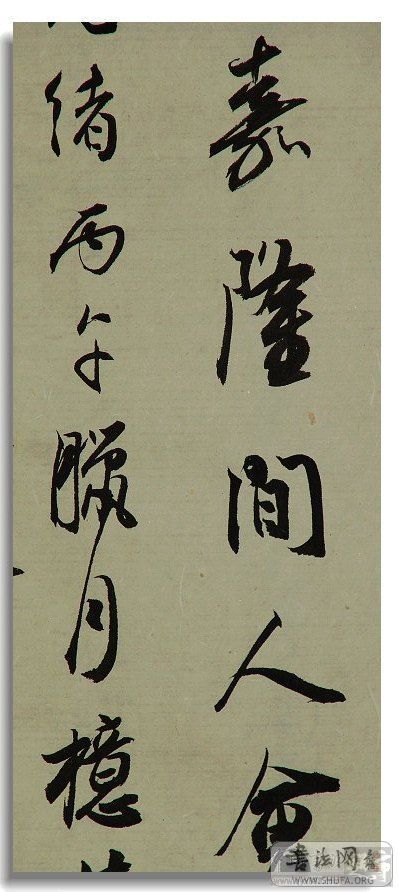 嘉隆間人會
緒丙午臘月檍
书法网
WWW.SHUFA.ORG